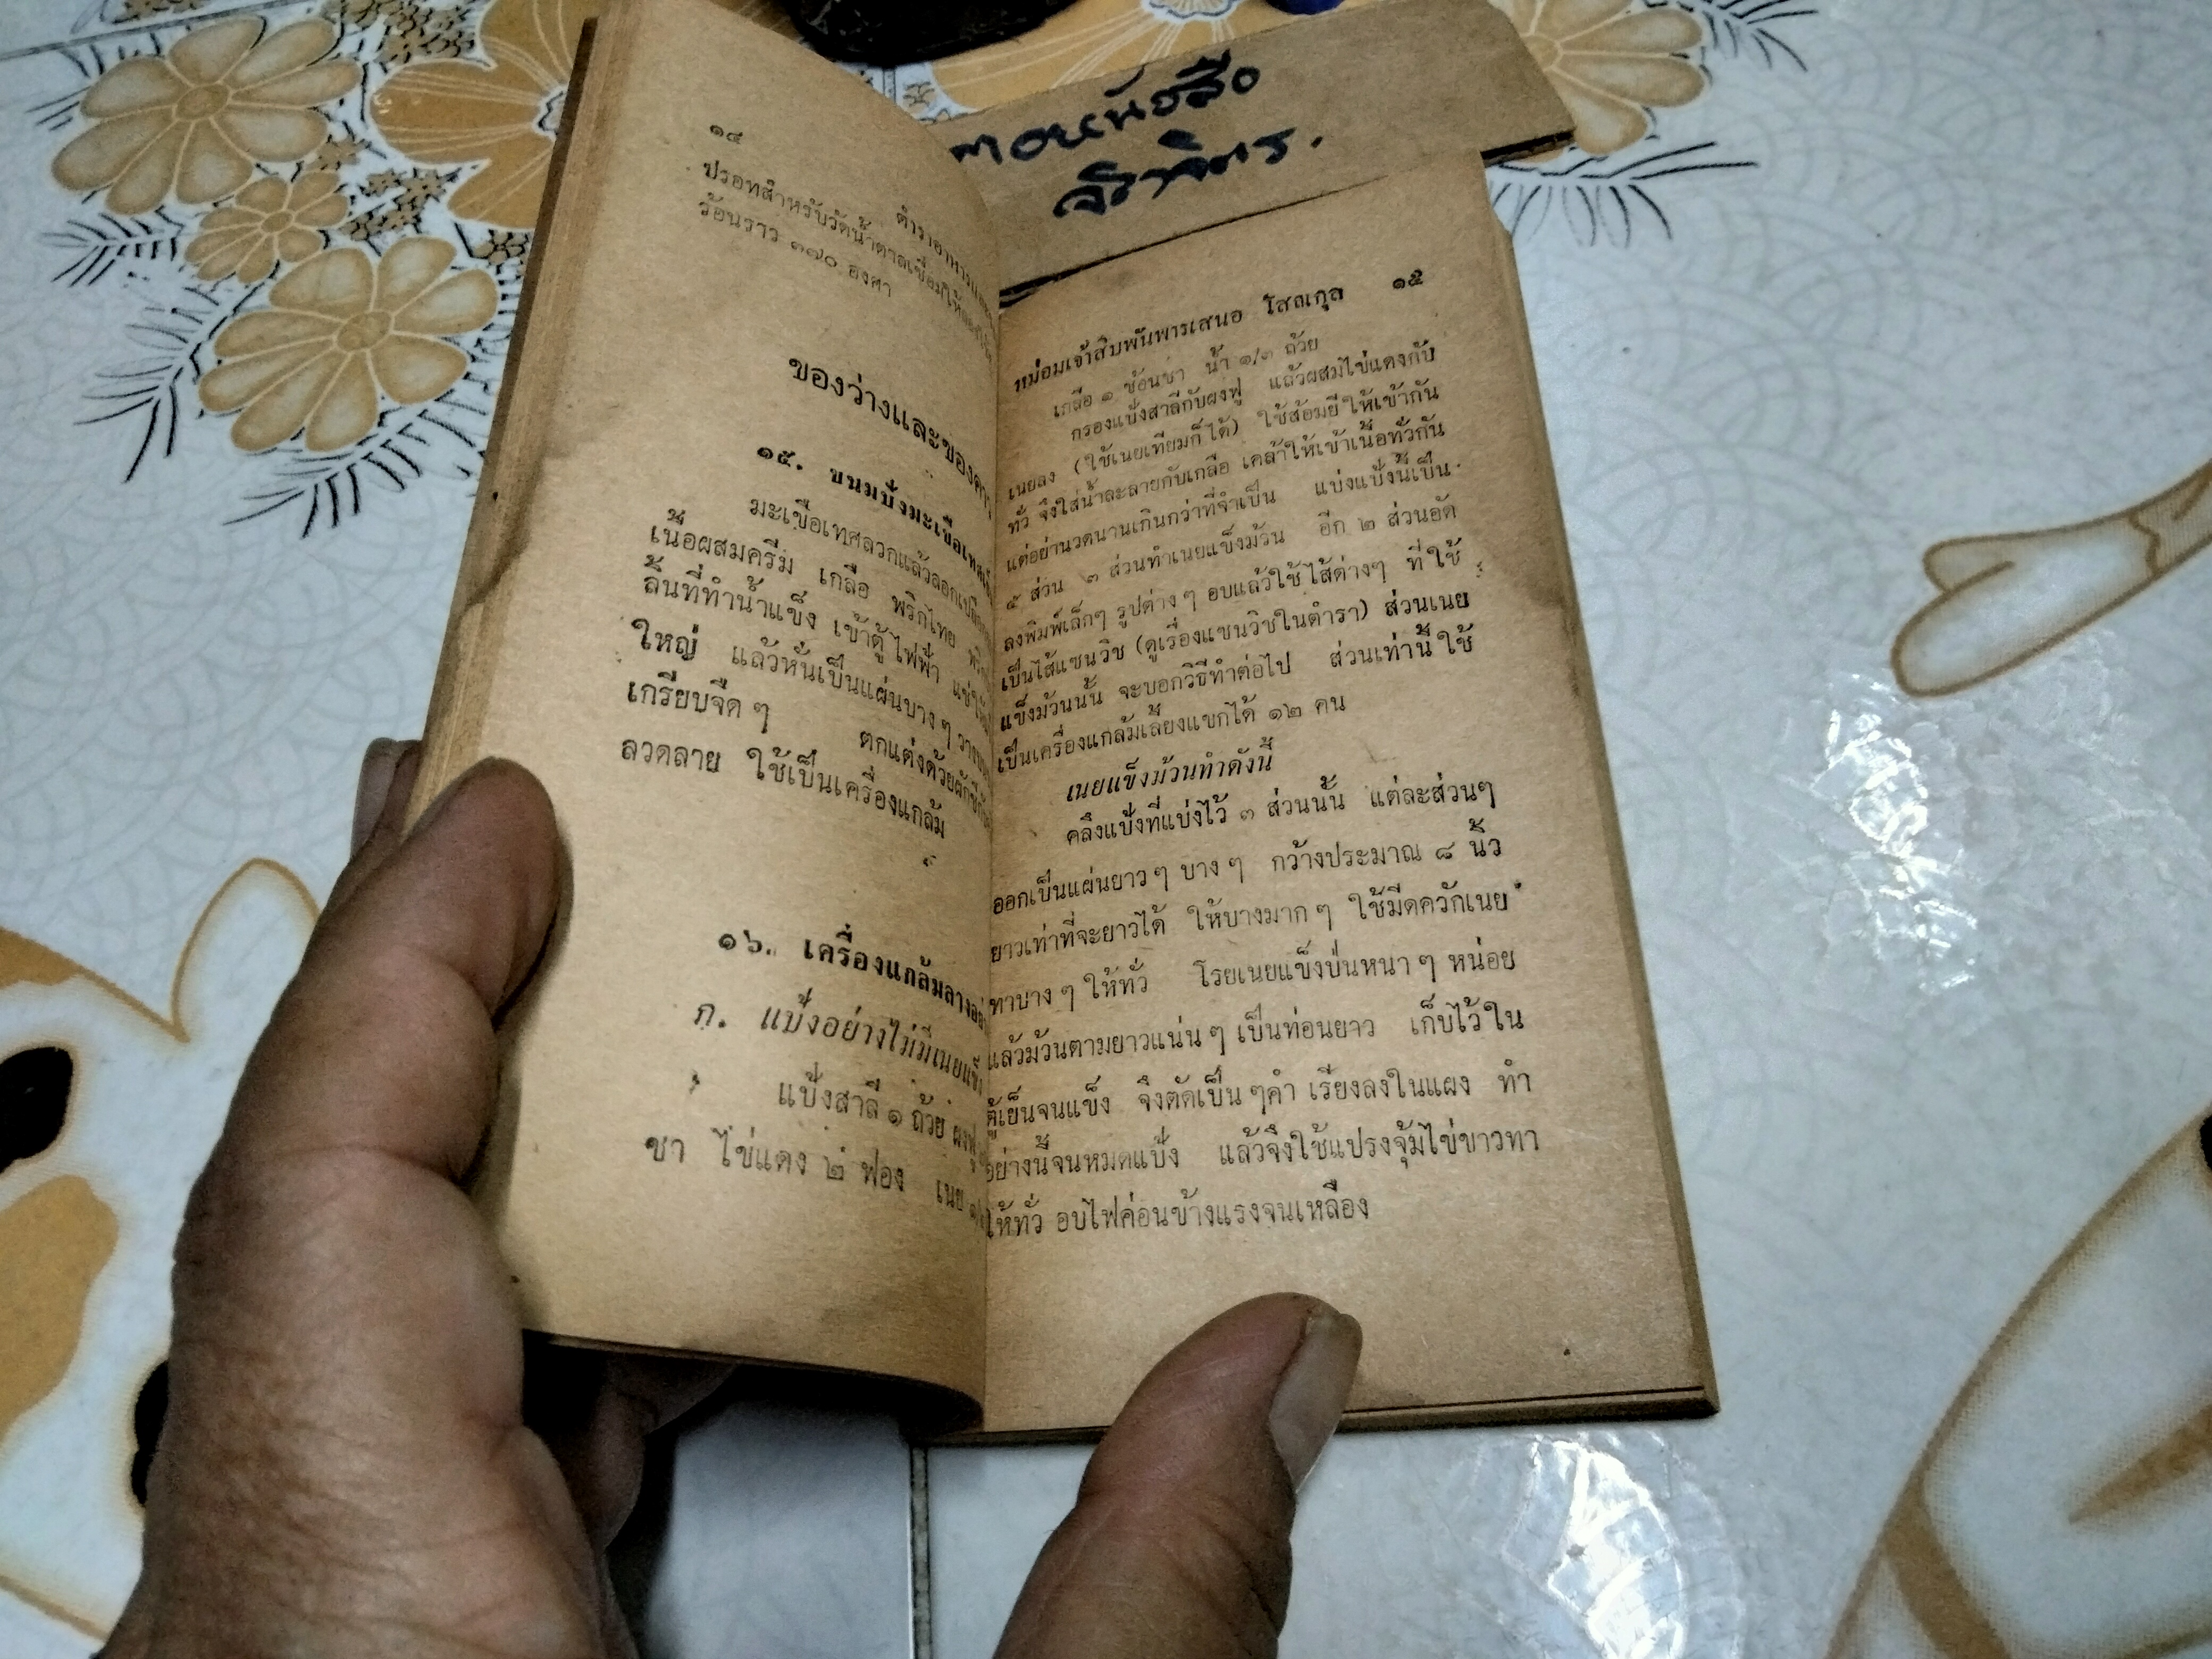 ๑๔
ตำราอาหาร
ปรอทสำหรับวัดน้ำตาลเชื่อมให้
ร้อนราว ๓๗๐ องศา
ของว่างและของ
๑๕. ขนมปังมะเขือเทศ
มะเขือเทศลวกแล้วลอกเปลือก
เนื้อผสมครีม เกลือ พริกไทย
ลิ้นที่ทำน้ำแข็ง เข้าตู้ไฟฟ้า
ใหญ่ แล้วหั่นเป็นแผ่นบาง ๆ
เกรียบจืด ๆ ตกแต่งด้วยผักชี
ลวดลาย ใช้เป็นเครื่องแกล้ม
๑๖. เครื่องแกล้มลาง
ก. แป้งอย่างไม่มีเนยแข็ง
แป้งสาลี ๑ ถ้วย ผงฟู
ชา ไข่แดง ๒ ฟอง เนย
หนังสือ
หม่อมเจ้าสิบพันพารเสนอ โสณกุล ๑๕
เกลือ ๑ ช้อนชา น้ำ ๑/๓ ถ้วย
กรองแป้งสาลีกับผงฟู แล้วผสมไข่แดงกับ
เนยลง (ใช้เนยเทียมก็ได้) ใช้ส้อมยีให้เข้ากัน
ทั่ว จึงใส่น้ำละลายกับเกลือ เคล้าให้เข้าเนื้อทั่วกัน
แต่อย่านวดนานเกินกว่าที่จำเป็น แบ่งแป้งนี้เป็น
๕ ส่วน ๓ ส่วนทำเนยแข็งม้วน อีก ๒ ส่วนอัด
ลงพิมพ์เล็กๆ รูปต่าง ๆ อบแล้วใช้ไส้ต่างๆ ที่ใช้
เป็นไส้แซนวิช (ดูเรื่องแซนวิชในตำรา) ส่วนเนย
แข็งม้วนนั้น จะบอกวิธีทำต่อไป ส่วนเท่านี้ใช้
เป็นเครื่องแกล้มเลี้ยงแขกได้ ๑๒ คน
เนยแข็งม้วนทำดังนี้
คลึงแป้งที่แบ่งไว้ ๓ ส่วนนั้น แต่ละส่วนๆ
ออกเป็นแผ่นยาวๆ บาง ๆ กว้างประมาณ ๘ นิ้ว
ยาวเท่าที่จะยาวได้ ให้บางมาก ๆ ใช้มีดควักเนย
ทาบาง ๆ ให้ทั่ว โรยเนยแข็งป่นหนา ๆ หน่อย
แล้วม้วนตามยาวแน่น ๆ เป็นท่อนยาว เก็บไว้ใน
ตู้เย็นจนแข็ง จึงตัดเป็น ๆคำ เรียงลงในแผง ทำ
อย่างนี้จนหมดแป้ง แล้วจึงใช้แปรงจุ้มไข่ขาวทา
ให้ทั่ว อบไฟค่อนข้างแรงจนเหลือง